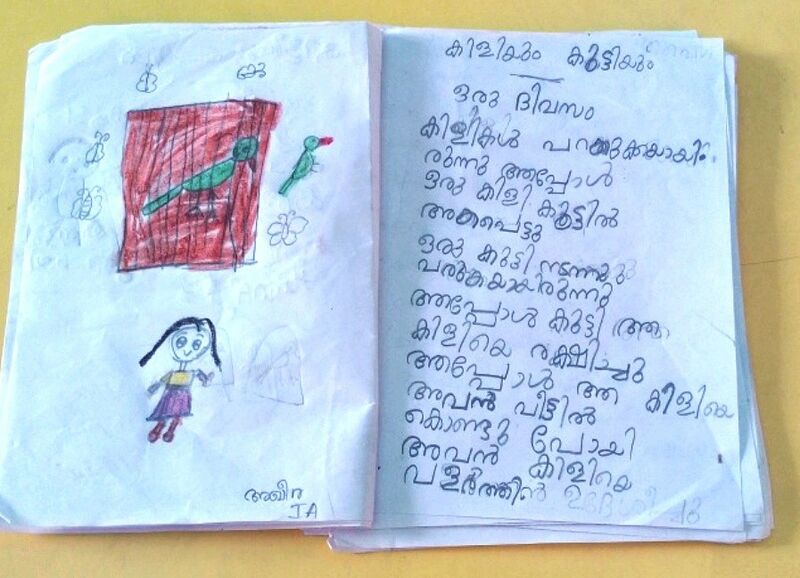 കിളിയും കുട്ടിയും
ഒരു ദിവസം
കിളികൾ പറക്കുകയായി
രുന്നു അപ്പോൾ
ഒരു കിളി കൂട്ടിൽ
അകപെട്ടു
ഒരു കുട്ടി നടന്നു
വരുകയായിരുന്നു
അപ്പോൾ കുട്ടി ആ
കിളിയെ രക്ഷിച്ചു
അപ്പോൾ ആ കിളിയെ
അവൻ വീട്ടിൽ
കൊണ്ടു പോയി
അവൻ കിളിയെ
വളർത്തിൻ
I A